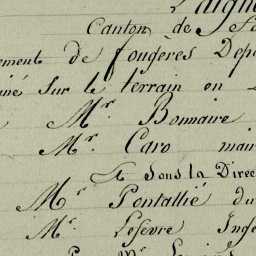 Canton de
ement de fougères Dep
iné Sur le terrain on
Mr. Bonnaire
Mr. Caro mai
Et Sous la Direc
Mr Pontallié du
Mr. Lefevre Inge